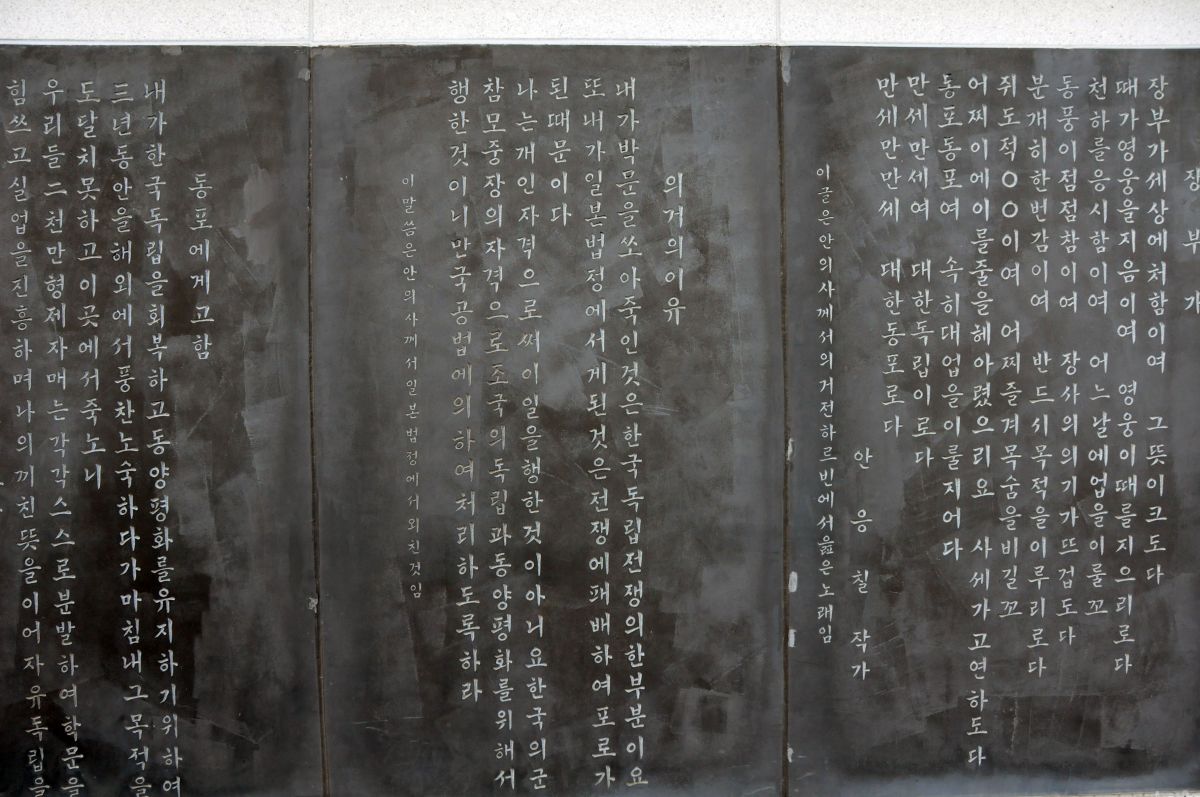 장 부 가
장부가세상에처함이여 그뜻이크도다
때가영웅을지음이여 영웅이때를지으리로다
천하를응시함이여 어느날에업을이룰꼬
동풍이점점참이여 장사의의기가뜨겁도다
분개히한번감이여 반드시목적을이루리로다
쥐도적OO이여 어찌즐겨목숨을비길꼬
어찌이에이를줄을헤아렸으리요 사세가고연하도다
동포동포여 속히대업을이룰지어다
만세만세여 대한독립이로다
만세만세 대한동포로다
안 응 칠 작가
이글은안의사께서의거전하르빈에서읊은노래임
의거의이유
내가박문을쏘아죽인것은한국독립전쟁의한부분이요
또내가일본법정에서게된것은전쟁에패배하여포로가
된때문이다
나는개인자격으로써이일을행한것이아니요한국의군
참모중장의자격으로조국의독립과동양평화를위해서
행한것이니만국공법에의하여처리하도록하라
이말씀은안의사께서일본범정에서외친것임
동포에게고함
내가한국독립을회복하고동양평화를유지하기위하여
三년동안을해외에서풍찬노숙하다가마침내그목적을
도달치못하고이곳에서죽노니
우리들二천만형제자매는각각스스로분발하여학문을
힘쓰고실업을진흥하며나의끼친뜻을이어자유독립을